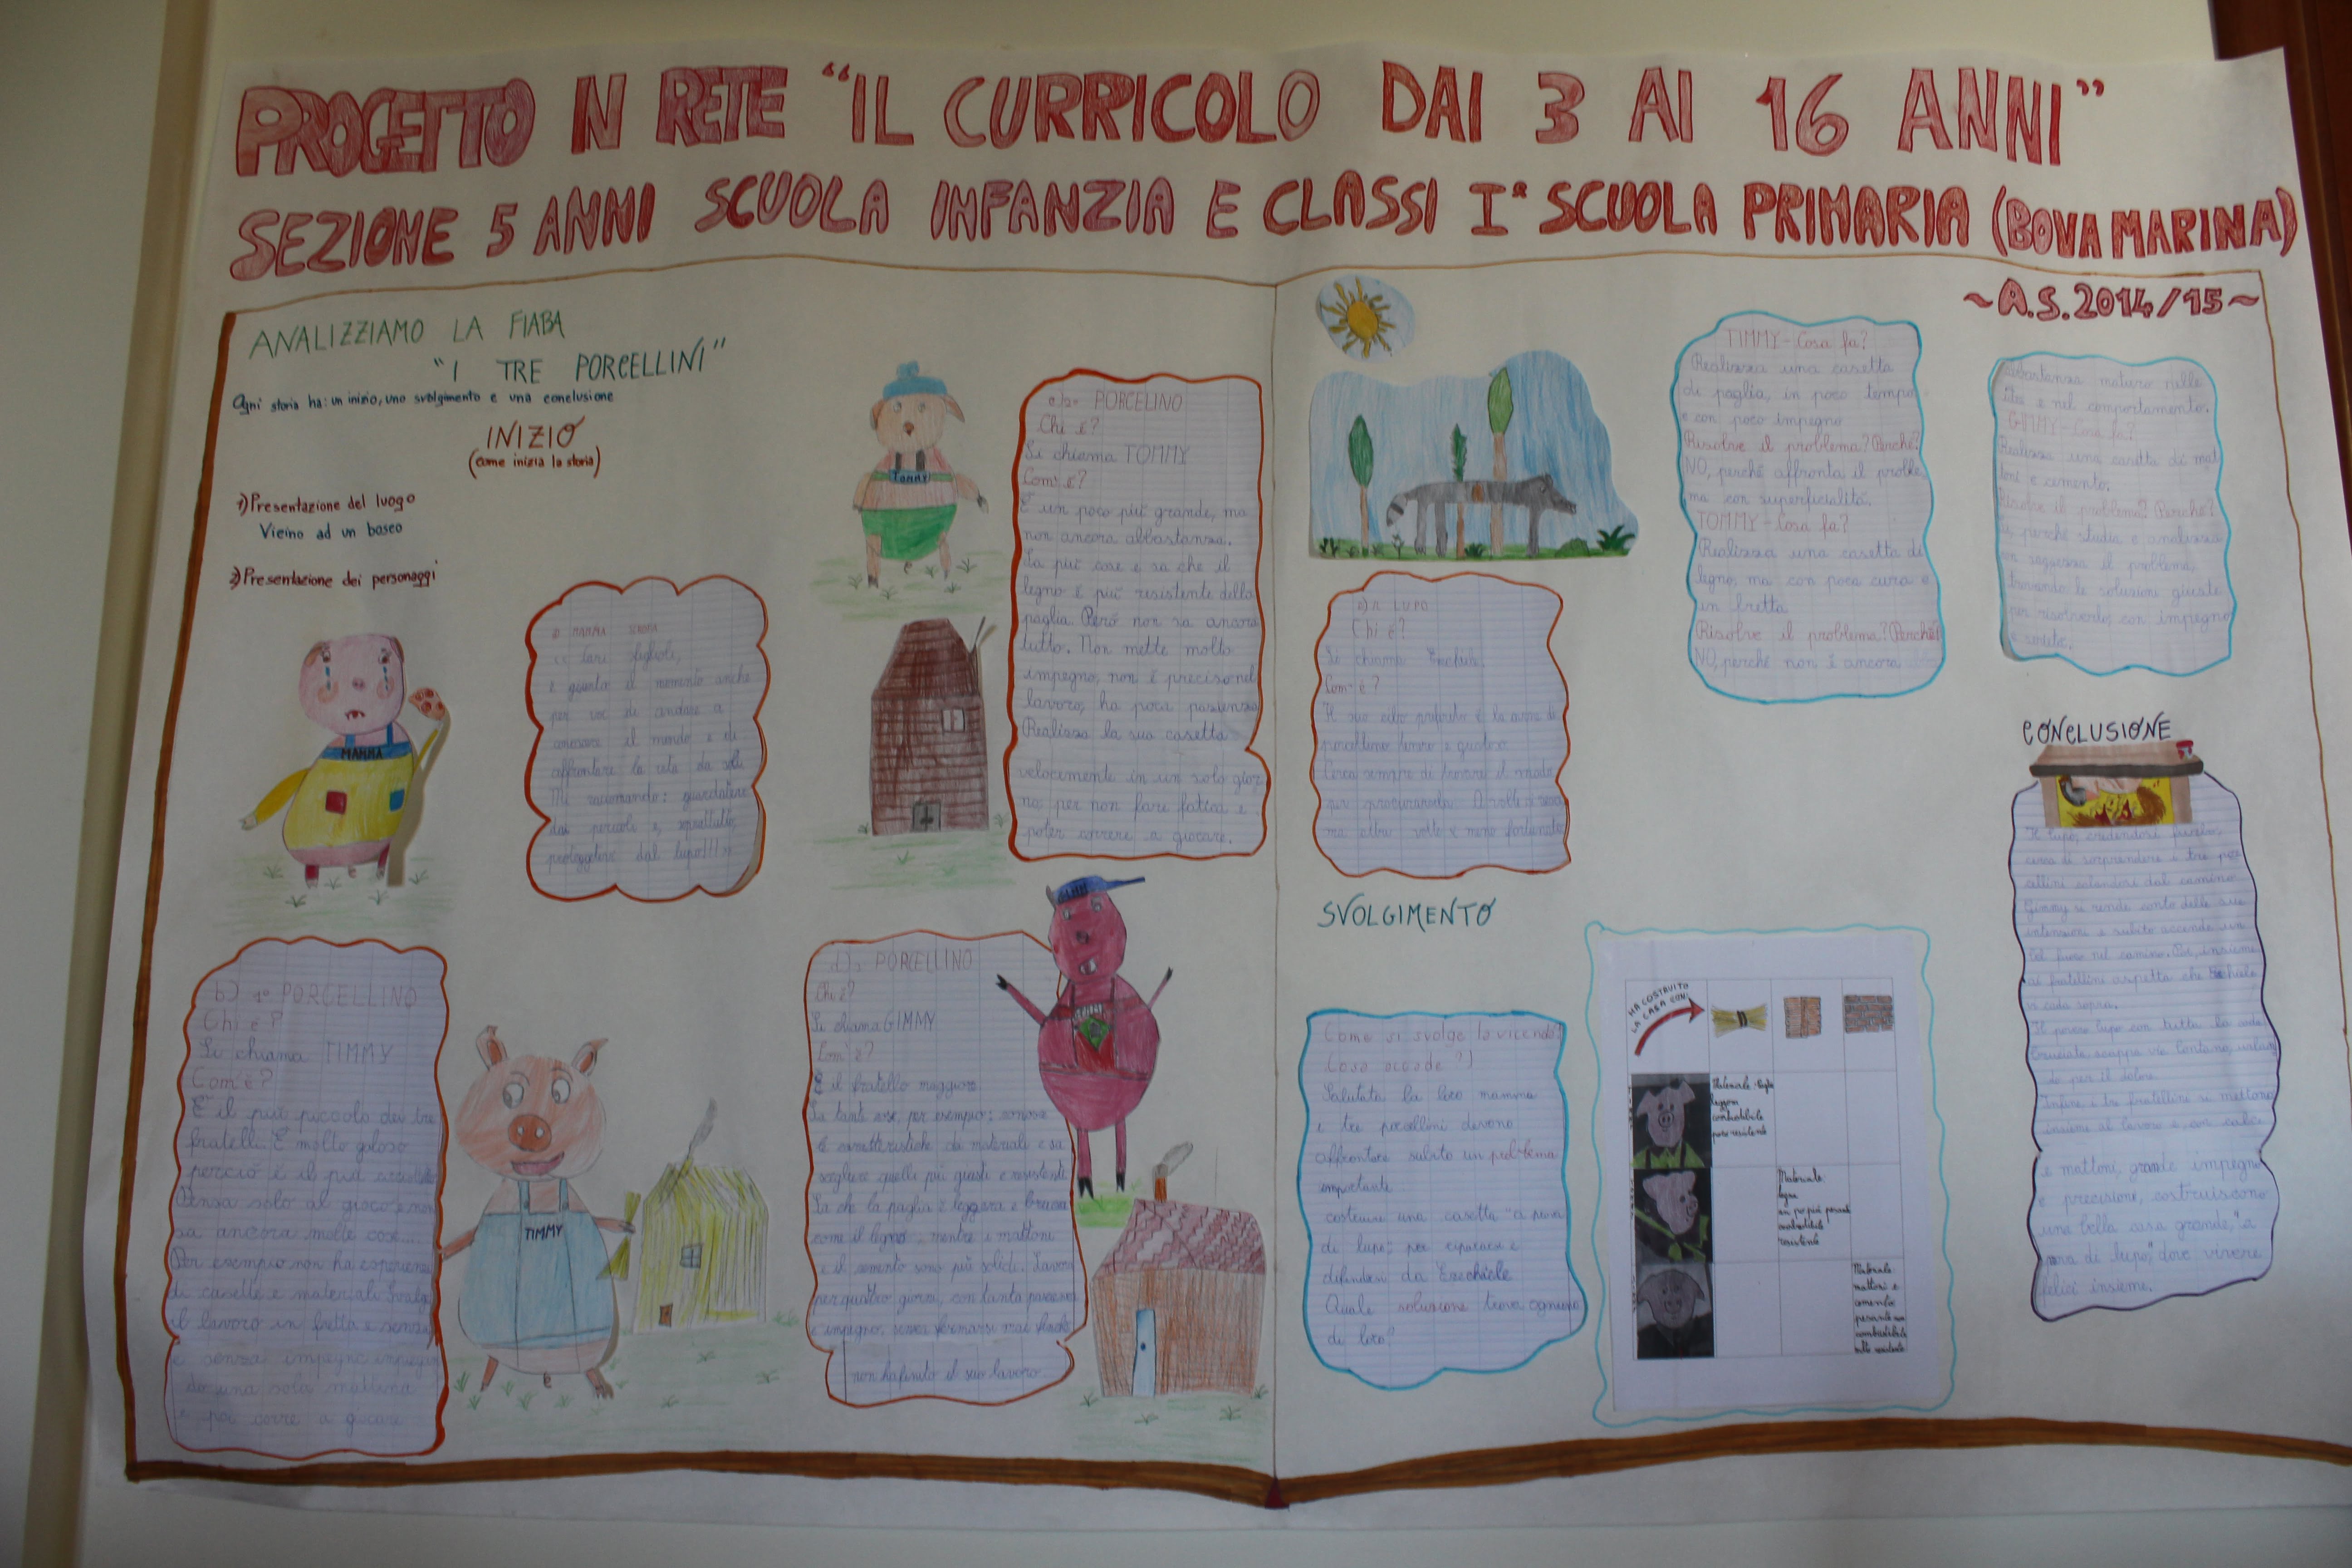 PROGETTO IN RETE “IL CURRICOLO DAI 3 AI 16 ANNI”
SEZIONE 5 ANNI SCUOLA INFANZIA E CLASSI Iª SCUOLA PRIMARIA (BOVA MARINA)
~A.S. 2014/15~
ANALIZZIAMO LA FIABA
“I TRE PORCELLINI”
Ogni storia ha: un inizio, uno svolgimento e una conclusione
INIZIO
(come inizia la storia)
1) Presentazione del luogo
Vicino ad un bosco
2) Presentazione dei personaggi
MAMMA
a) MAMMA SCROFA
cari figlioli,
è giunto il momento anche
per voi di andare a
conoscere il mondo e di
affrontare la vita da soli.
Mi raccomando: guardatevi
dai pericoli e, soprattutto,
proteggetevi dal lupo!!!»
b) 1° PORCELLINO
Chi è?
Si chiama TIMMY
Com'è?
È il più piccolo dei tre
fratelli. È molto goloso
perciò è il più
Pensa solo al gioco e non
sa ancora molte cose...
Per esempio non ha esperienza
di casette e materiali. Svolge
il lavoro in fretta e senza
e senza impegno
do una sola mattina
e poi corre a giocare
TIMMY
Tommy
PORCELINO
Chi è?
Si chiama TOMMY
Com'è?
È un poco più grande, ma
non ancora abbastanza.
Sa più cose e sa che il
legno è più resistente della
paglia. Però non sa ancora
tutto. Non mette molto
impegno, non è preciso nel
lavoro, ha poca pazienza
Realizza la sua casetta
velocemente in un solo gior
no, per non fare fatica e
poter correre a giocare.
PORCELLINO
Chi è?
Si chiama GIMMY
Com'è?
È il fratello maggiore
Sa tante cose, per esempio: conosce
le caratteristiche dei materiali e sa
scegliere quelli più giusti e resistenti
Sa che la paglia è leggera e brucia
come il legno, mentre i mattoni
e il cemento sono più solidi. Lavora
per quattro giorni, con tanta pazienza
e impegno, senza fermarsi mai finché
non ha finito il suo lavoro
e) IL LUPO
Chi è?
Si chiama
Com'è?
Il suo cibo preferito è la carne di
porcellino tenero e gustoso.
Cerca sempre di trovare il modo
per procurarsela. A volte ci
ma altre volte è meno fortunato
SVOLGIMENTO
Come si svolge la vicenda?
(Cosa accade?)
Salutata la loro mamma
i tre porcellini devono
affrontare subito un problema
importante
costruire una casetta “a prova
di lupo” per ripararsi e
difendersi da Ezechiele
Quale soluzione trova ognuno
di loro?
TIMMY - Cosa fa?
Realizza una casetta
di paglia, in poco tempo
e con poco impegno
Risolve il problema? Perché?
NO, perché affronta il proble
ma con superficialità.
TOMMY - Cosa fa?
Realizza una casetta di
legno, ma con poca cura e
in fretta
Risolve il problema? Perché?
NO, perché non è ancora
abbastanza maturo nelle
e nel comportamento.
GIMMY - Cosa fa?
Realizza una casetta di mat
toni e cemento.
Risolve il problema? Perché?
perché studia e analizza
il problema,
trovando le soluzioni giuste
per risolverlo, con impegno
e serietà.
HA COSTRUITO
LA CASA CON:
Materiale: paglia
leggera
combustibile
poco resistente
Materiale:
legno
un po' più pesante
combustibile
resistente
Materiale:
mattoni e
cemento
pesante non
combustibile
molto resistente
CONCLUSIONE
Il lupo, credendosi furbo,
cerca di sorprendere i tre por
cellini calandosi dal camino.
Gimmy si rende conto delle sue
intenzioni e subito accende un
bel fuoco nel camino. Poi, insieme
ai fratellini aspetta che Ezechiele
ci cada sopra.
Il povero lupo con tutta la coda
bruciata scappa via lontano, urlan
do per il dolore.
Infine i tre fratellini si mettono
insieme al lavoro e, con calce
e mattoni, grande impegno
e precisione, costruiscono
una bella casa grande, “a
prova di lupo,” dove vivere
felici insieme.